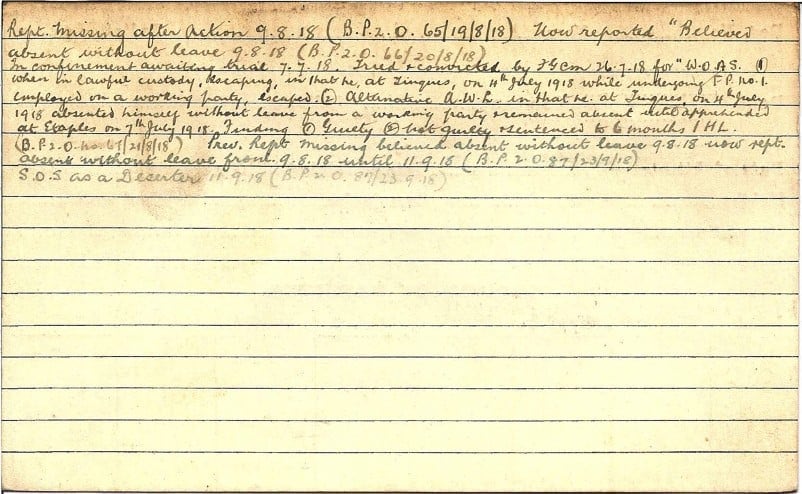 Rept. Missing after Action 9.8.18 (B.P.2.O. 65/19/8/18) Now reported "Believed
absent without leave 9.8.18 (B.P.2.O. 66/20/8/18)
In confinement awaiting trial 7.7.18 Tried & convicted by FGCM 26.7.18 for "W.O.A.S. (1)
when in lawful custody, escaping, in that he, at Tingues, on 4th July 1918 while undergoing F.P. no. 1.
employed on a working party, escaped. (2) Alternative A.W.L. in that he. at Tingues, on 4th July
1918 absented himself without leave from a working party & remained absent until apprehended
at Etaples on 7th July 1918. Finding (1) Guilty (2) Not guilty & sentenced to 6 months I HL.
(B.P.2.O. no. 67/21/8/18) Prev. rept missing believed absent without leave 9.8.18 now rept.
absent without leave from 9.8.18 until 11.9.18 (B.P.2.O. 87/23/9/18)
S.O.S as a Deserter 11.9.18 (B.P.2.O. 87/23.9.18)